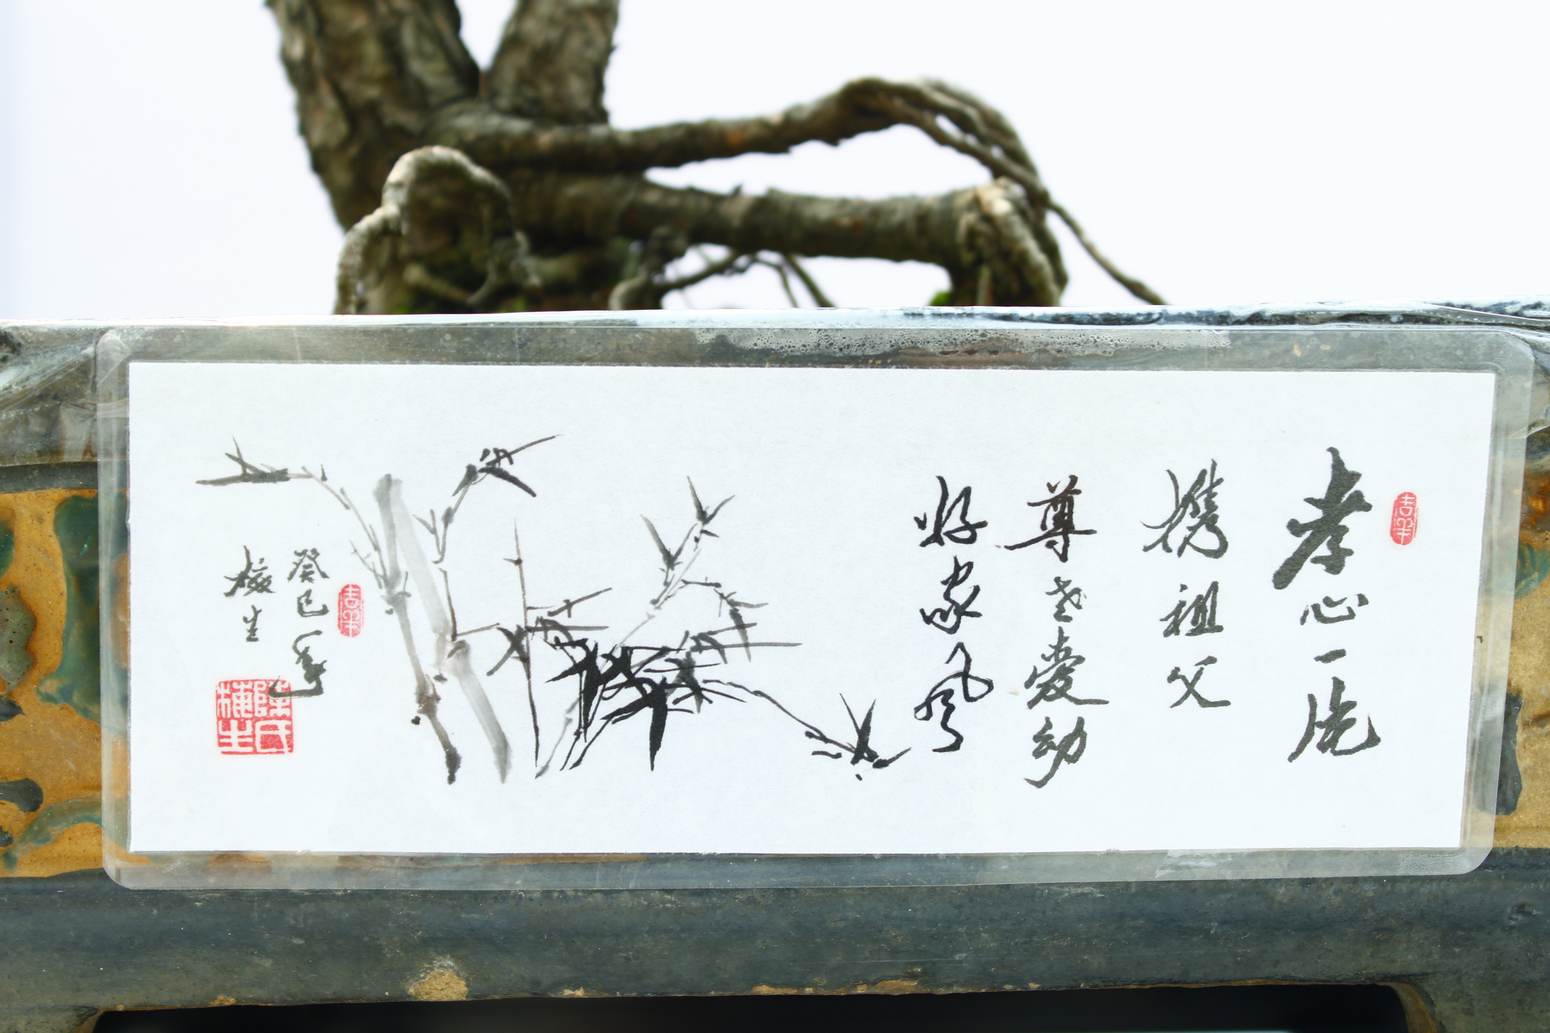 孝心一片
携祖父
尊老爱幼
好家风
癸巳年
梅生
陈氏梅生